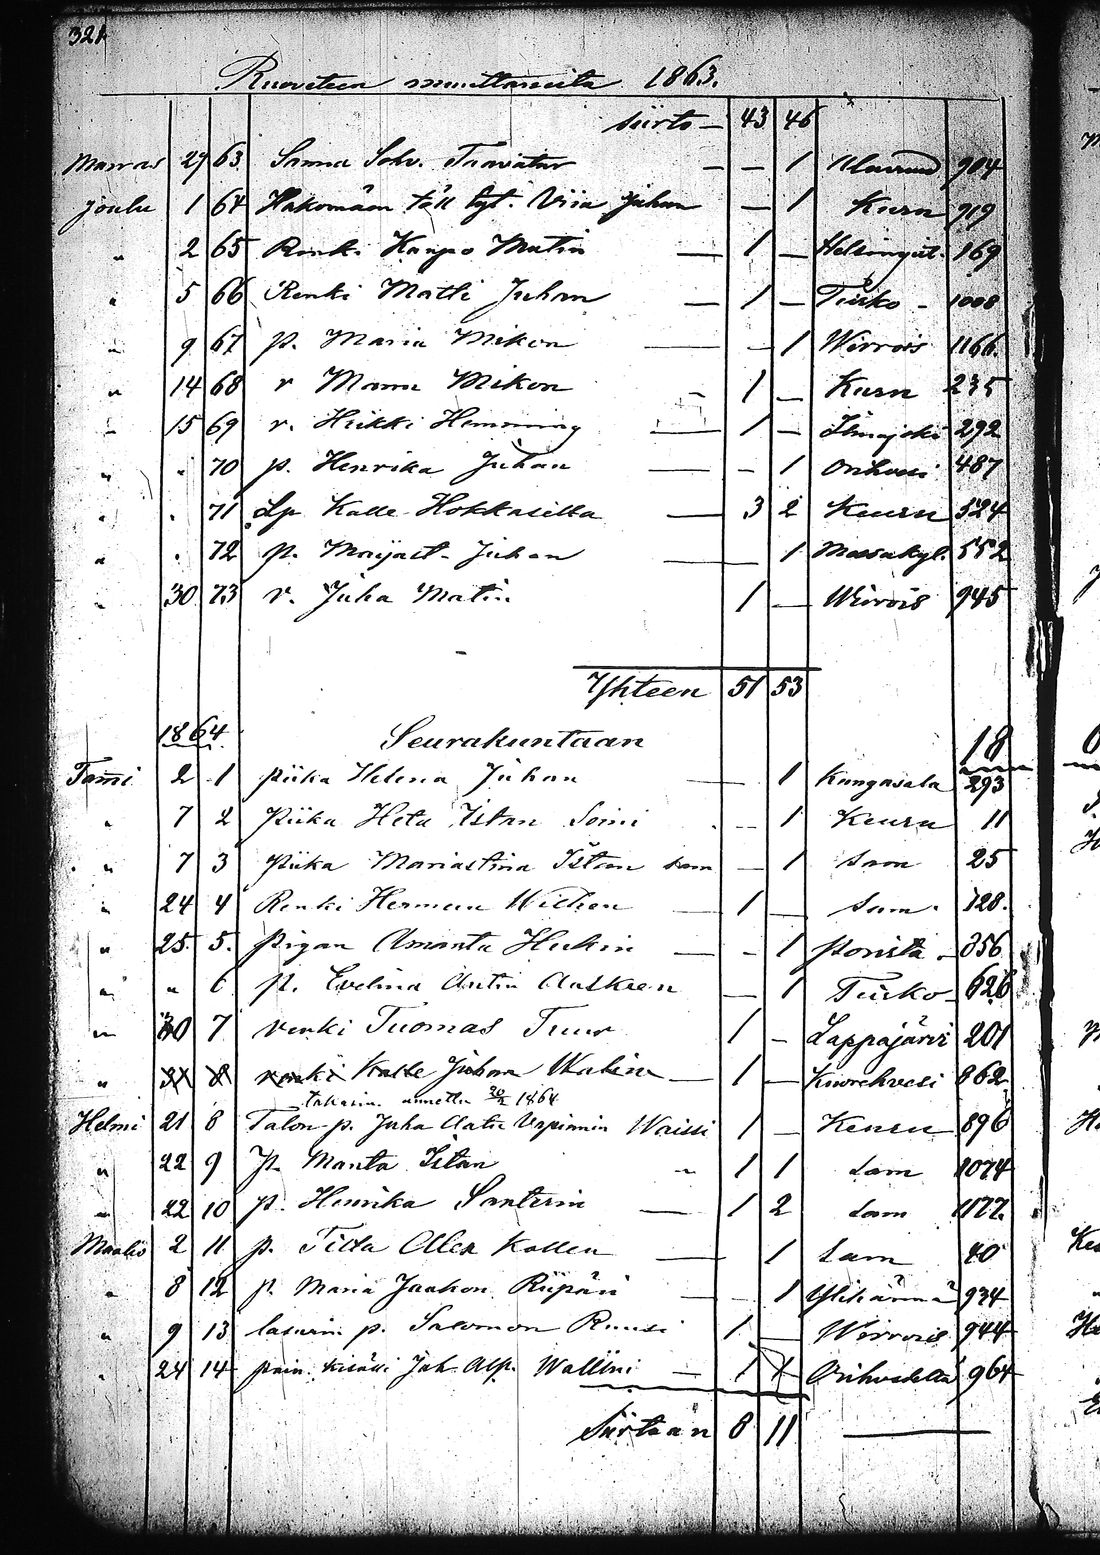 321
Ruoveteen muuttaneita 1863.
siirto — 43 46
Marras 27 63 Sanna Taavatar — — 1 904
Joulu 1 64 Hakomäen tyt. Viia Juhan — 1 Kuru 919
" 2 65 Renki Matin — 1 — Helsingist. 169
" 5 66 Renki Matti Juhan — 1 — Turko - 1008
" 9 67 p. Maria Mikon — — 1 Wirrois 1166.
" 14 68 r Mikon 1 — Kuru 235
" 15 69 r. Heikki Hemming — 1 — Ilmajoki 292
" . 70 p. Henrika Juhan — - 1 Orihvesi 487
" . 71 Lp Kalle Hokkaselta — 3 2 Keuru 524
" . 72 p. Juhan — 1 552
" 30 73 r. Juha Matin 1 — Wirrois 945
Yhteen 51 53
1864 Seurakuntaan 18
Tami 2 1 piika Helena Juhan — 1 Kangasala 293
" 7 2 Piika Heta Istan Somi - 1 Keuru 11
" 7 3 Piika Mariastina Istan sam — 1 sam 25
" 24 4 Renki Herman — 1 — sam. 128.
" 25. 5. pigan Amanta — - 1 porista - 356
" " 6 p. Evelina Antin — 1 Turko 626
" 30 7 renki Tuomas Tuur 1 - Lappajärvi 201
" 31 8 renki Kalle Juhan — 1 — Kuorehvesi 862
takasin annettu 20/2 1864
Helmi 21 8 Talon p. Juha Waissi 1 — Keuru 896
" 22 9 p. Manta Istan " 1 1 sam 1074
" 22 10 p. Henrika Santerin — 1 2 sam 1177.
Maalis 2 11 p. Tilta Alex Kallen — 1 sam 40
" 8 12 p. Maria Jaakon Riipäri — - 1 Ylihärmä 934
" 9 13 lasurin p. Salomon Ruusi 1 — Wirrois 944
" 24 14 pain. kisälli Joh. Alp. Wallini — 1 1 Orihvedeltä 964
Siirtaan 8 11 —